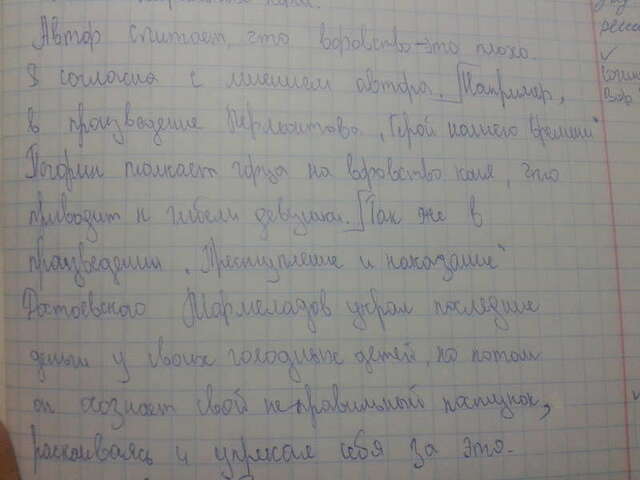 Автор считает, что воровство-это плохо.
Я согласна с мнением автора. Например,
в произведение Лермонтова "Герой нашего времени"
Печорин толкает горца на воровство коня, что
приводит к гибели девушки. Так же в
произведении "Преступление и наказание"
Достоевского Мармеладов украл последние
деньги у своих голодных детей, но потом
он осознает свой неправильный поступок,
раскаиваясь и упрекая себя за это.